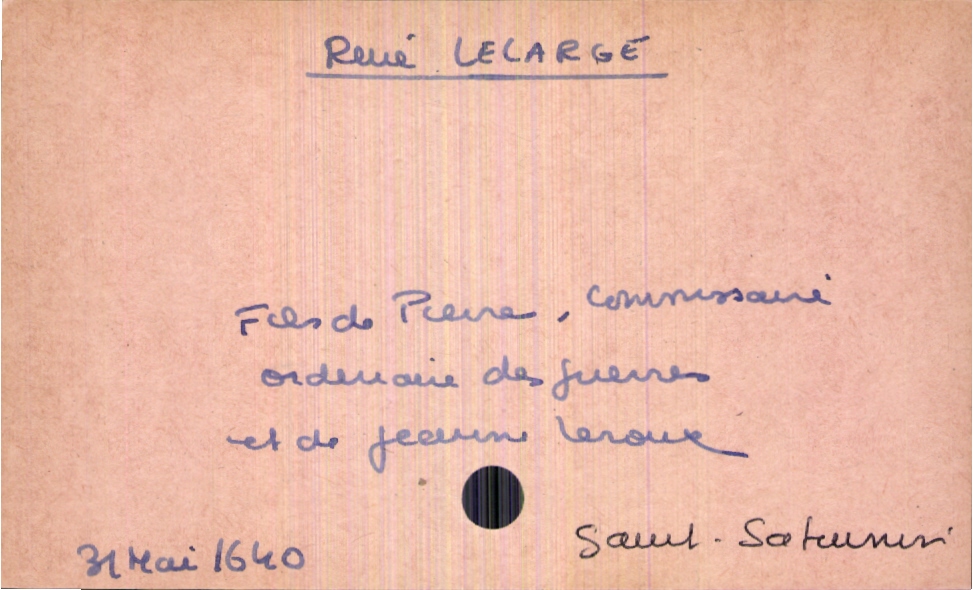 René LELARGE
Fils de Pierre, Commissaire
ordinaire des guerres
et de Jeanne Leroux
31 Mai 1640
Saint-Saturnin